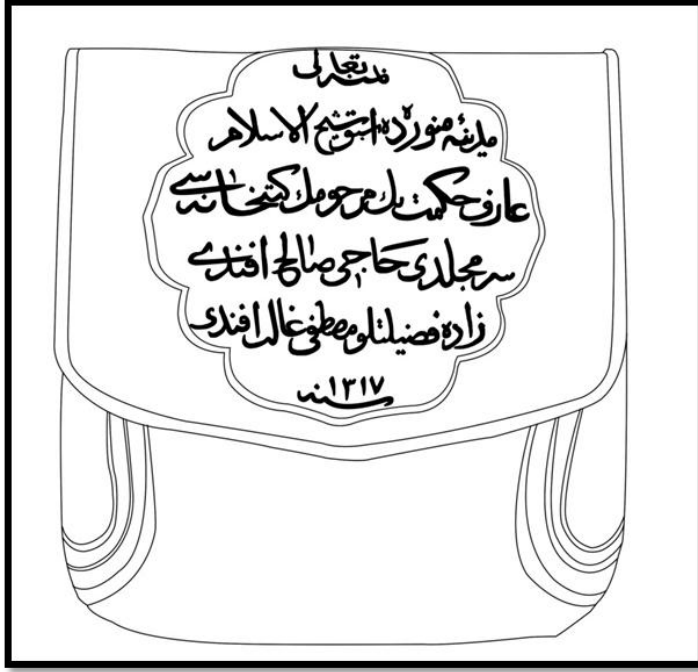 مدينهٔ منوره ده اسبق شيخ الاسلام
عارف حكمت بك مرحومك كتبخانه سى
سر مجلدى حاجى صالح افندى
زاده فضيلتلو مصطفى غالب افندى
سنه ١٣١٧